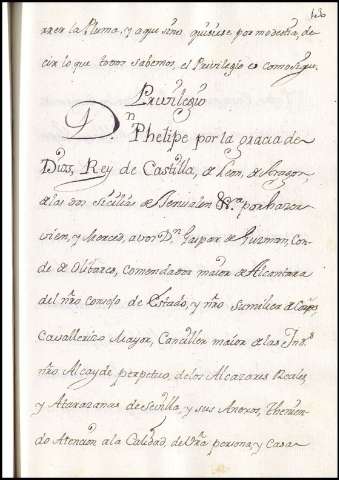 rrer la Pluma, y a que sino quisiese por modestia, de-
cir lo que todos sabemos, el Privilegio es como sigue.
Privilegio
Dn Phelipe por la gracia de
Dios, Rey de Castilla, de Leon, de Aragon,
de las dos Sicilias de Jerusalen &ra. por hazer
vien, y Merced, a vos Dn Gaspar de Guzman, Con-
de de Olibares, comendador maior de Alcantara
del nro Consejo de Estado, y nro Sumiller de Corps,
Cavallerizo Mayor, Canciller maior de las Inds
nro Alcayde perpetuo, de los Alcazares Reales,
y Atarazanas de Sevilla, y sus Anexos, thenien-
do Atencion a la Calidad, de vra persona, y Casa